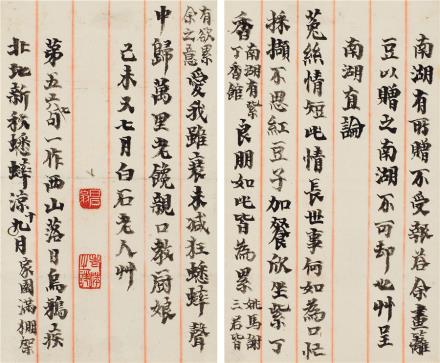 南湖有所贈不受報答余畫籬
豆以贈之南湖不可却也艸呈
南湖直論
菟絲情短此情長世事何如為口忙
採擷不思紅豆子加餐欣坐紫丁
香南湖有紫丁香館良朋如此皆為累姚馬謝三君皆
有欲累余之意愛我雖衰未減狂蟋蟀聲
中歸萬里老饞親口教廚娘
己未又七月白石老人艸
第五六句一作西山落日烏鴉
北地新秋蟋蟀涼十九月家園滿棚架